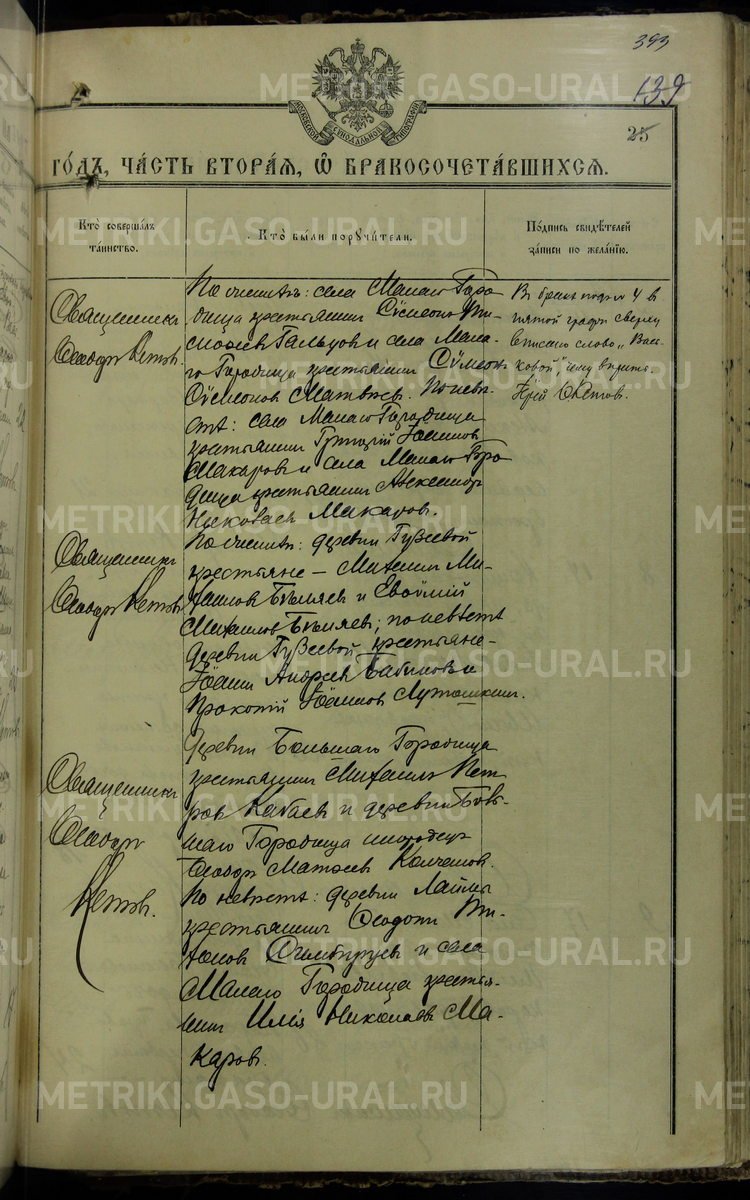 393
139
25
МОСКОВСКОЙ СѴНОДАЛЬНОЙ ТИПОГРАФІИ
ГОДЪ, ЧАСТЬ ВТОРАЯ, Ѡ БРАКОСОЧЕТАВШИХСЯ.
Кто совершалъ таинство.
Кто были поручители.
Подпись свидѣтелей записи по желанію.
Священникъ
Ѳеодоръ Кетовъ.
По женихѣ: села Малаго Горо-
дища крестьянинъ Сѵмеонъ
Гальцовъ и села Мала-
го Городища крестьянинъ Сѵмеонъ
Сѵмеоновъ Матвѣевъ. По невѣ-
стѣ: села Малаго Городища
крестьянинъ Григорій Іоанновъ
Макаровъ и села Малаго Горо-
дища крестьянинъ Александръ
Николаевъ Макаровъ.
Въ бракѣ подъ № 4 въ
пятой графѣ сверху
вписано слово „
ковой", чему вѣрить.
Іерей Ѳ. Кетовъ.
Священникъ
Ѳеодоръ Кетовъ
По женихѣ: деревни Гузеевой
крестьяне – Михаилъ Ми-
хаиловъ Бѣляевъ и Евѳимій
Михаиловъ Бѣляевъ; по невѣстѣ
деревни Гузеевой крестьяне –
Іоаннъ Андреевъ Бабиновъ и
Прокопій Іоанновъ Лутошкинъ.
Священникъ
Ѳеодоръ
Кетовъ.
деревни Большаго Городища
крестьянинъ Михаилъ Пет-
ровъ Кабаевъ и деревни Боль-
шаго Городища инородецъ
Ѳеодоръ Матѳеевъ Колчановъ.
По невѣстѣ: деревни Лаймы
крестьянинъ Ѳеодотъ
Симбирцевъ и села
Малаго Городища крестья-
нинъ Илія Николаевъ Ма-
каровъ.
METRIKI.GASO-URAL.RU